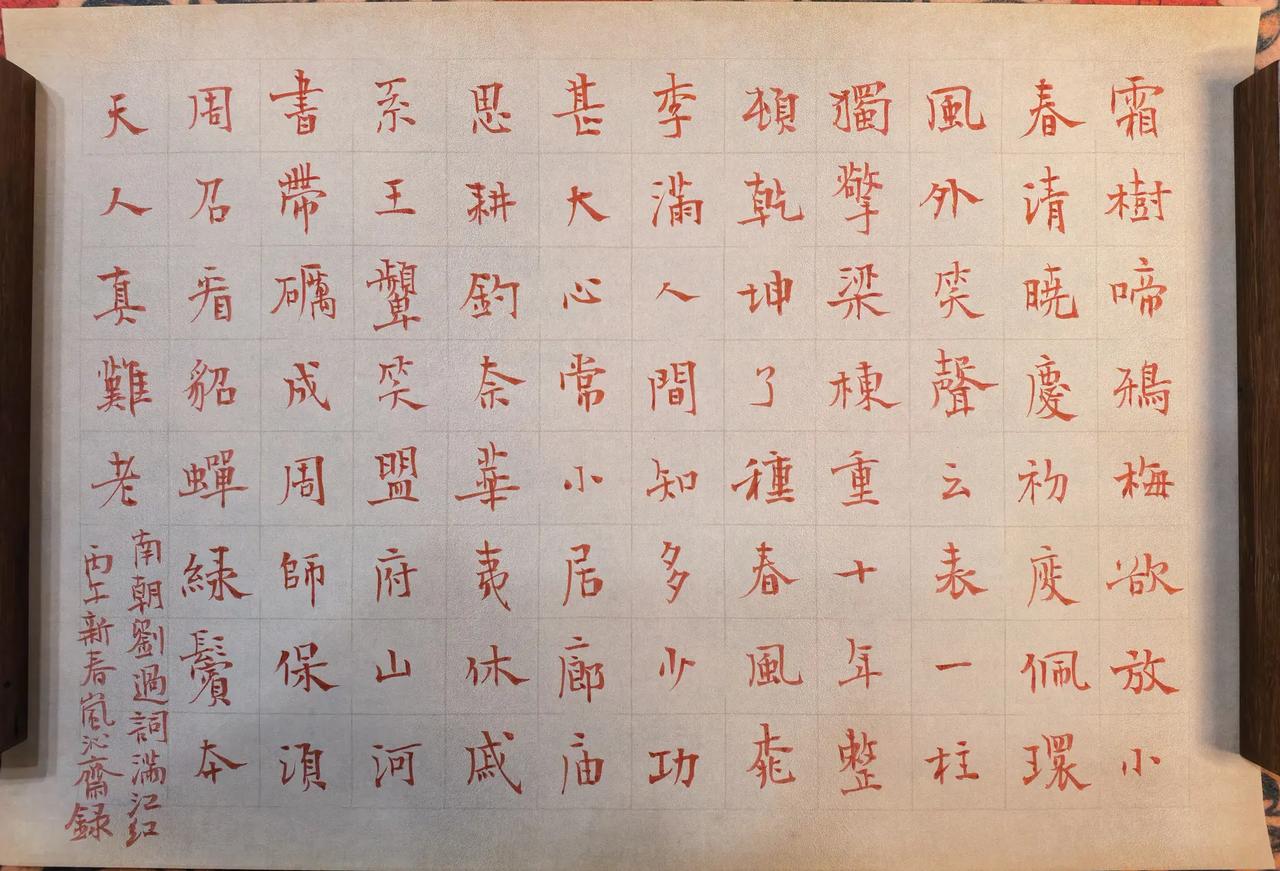 霜樹啼鴉梅欲放小
春清曉慶初度佩環
風外笑聲云表一柱
獨擎梁棟重十年整
頓乾坤了種春風桃
李滿人間知多少功
甚大心常小居廊庙
思耕釣奈華夷休戚
系王顰笑盟府山河
書帶礪成周師保須
周召看貂蟬緑鬢夲
天人真難老
南朝劉過詞滿江红
丙午新春嵐沁齋録